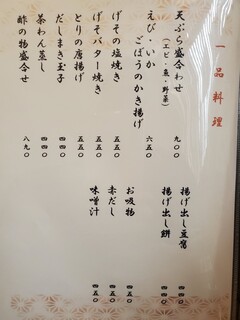 一品料理
天ぷら盛合わせ
(エビ・魚・野菜)
九〇〇
えび・いか
ごぼうのかき揚げ
六五〇
げその塩焼き
五五〇
げそバター焼き
五五〇
とりの唐揚げ
五五〇
だしまき玉子
四四〇
茶わん蒸し
四四〇
酢の物盛合せ
八九〇
揚げ出し豆腐
四四〇
揚げ出し餅
四四〇
お吸物
四五〇
赤だし
四五〇
味噌汁
四五〇